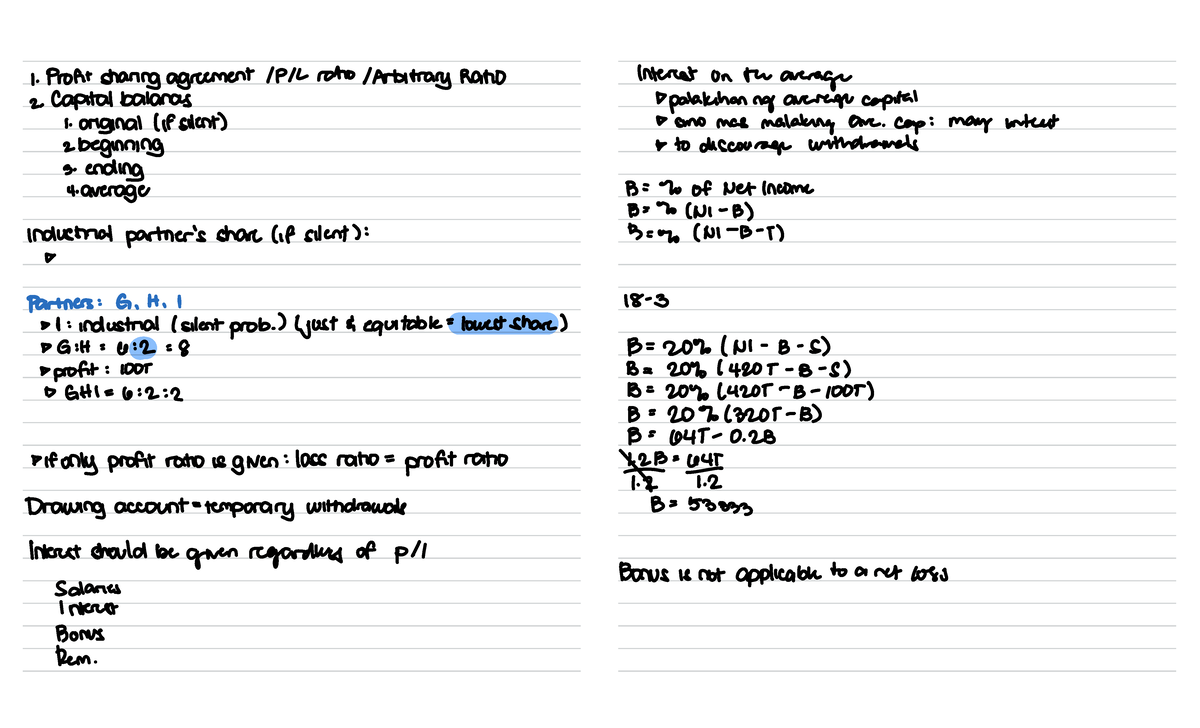 1. Profit sharing agreement /P/L ratio /Arbitrary Ratio
2. Capital balances
1. original (if silent)
2. beginning
3. ending
4. average
Industrial partner's share (if silent):
▹
Partners: G, H, I
▹ I: industrial (silent prob.) (just & equitable = lowest share)
▹ G:H = 6:2 = 8
▹ profit: 100T
▹ GHI = 6:2:2
▹ if only profit ratio is given: loss ratio = profit ratio
Drawing account = temporary withdrawals
Interest should be given regardless of p/l
Salaries
Interest
Bonus
Rem.
Interest on the average
▹ palakihan ng average capital
▹ ano mas malaking ave. cap: may interest
▹ to discourage withdrawals
B = % of Net Income
B = % (NI - B)
B = % (NI - B - T)
18-3
B = 20% (NI - B - S)
B = 20% (420T - B - S)
B = 20% (420T - B - 100T)
B = 20% (320T - B)
B = 64T - 0.2B
1.2B = 64T
1.2 1.2
B = 53333
Bonus is not applicable to a net loss